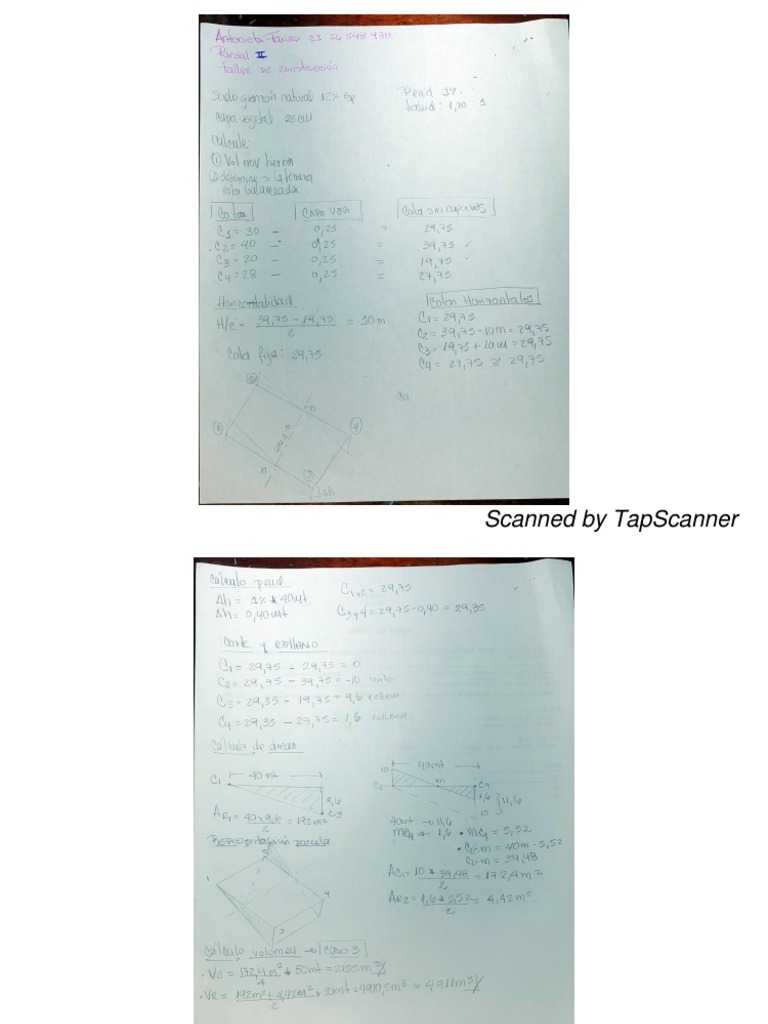 Antonieta Farina CI 26.548.930
Parcial II
taller de construcción
Suelo granzón natural 12% Ep
Pend 1%
Capa vegetal 20 cm
talud: 1,70 1
Calcule:
① Vol mov tierra
② determine si la terraza
esta balanceada
Cotas CAPA VEG Cota sin capa veg
C1 = 30 - 0,25 = 29,75
C2 = 40 - 0,25 = 39,75
C3 = 20 - 0,25 = 19,75
C4 = 28 - 0,25 = 27,75
Horizontalidad
H/2 = 39,75 - 19,75 = 10m
2
Cota fija: 29,75
Cotas Horizontales
C1 = 29,75
C2 = 39,75 - 10m = 29,75
C3 = 19,75 + 10m = 29,75
C4 = 27,75 ≅ 29,75
②
m
①
④
n
③
Δh
Scanned by TapScanner
Cálculo pend
Δh = 1% * 40mt
Δh = 0,40mt
C1y2 = 29,75
C3y4 = 29,75 - 0,40 = 29,35
Corte y relleno
C1 = 29,75 - 29,75 = 0
C2 = 29,75 - 39,75 = -10 corte
C3 = 29,35 - 19,75 = 9,6 relleno
C4 = 29,35 - 27,75 = 1,6 relleno
Cálculo de áreas
C1 40 mt
9,6
C3
AR1 = 40*9,6 = 192 m²
2
10 40mt
C2 m C4
1,6 11,6
10
40mt → 11,6
mC4 ← 1,6
• mC4 = 5,52
• C2-m = 40m - 5,52
C2-m = 34,48
AC1 = 10 * 34,48 = 172,4 m²
2
AR2 = 1,6 * 5,52 = 4,42 m²
2
Representación parcela
3
1
4
2
Cálculo volumen → Caso 3
• Vc = 172,4m² * 50mt = 2155 m³
4
• VR = 192m² + 4,42m² * 50mt = 4910,5m³ ≈ 4911m³
2